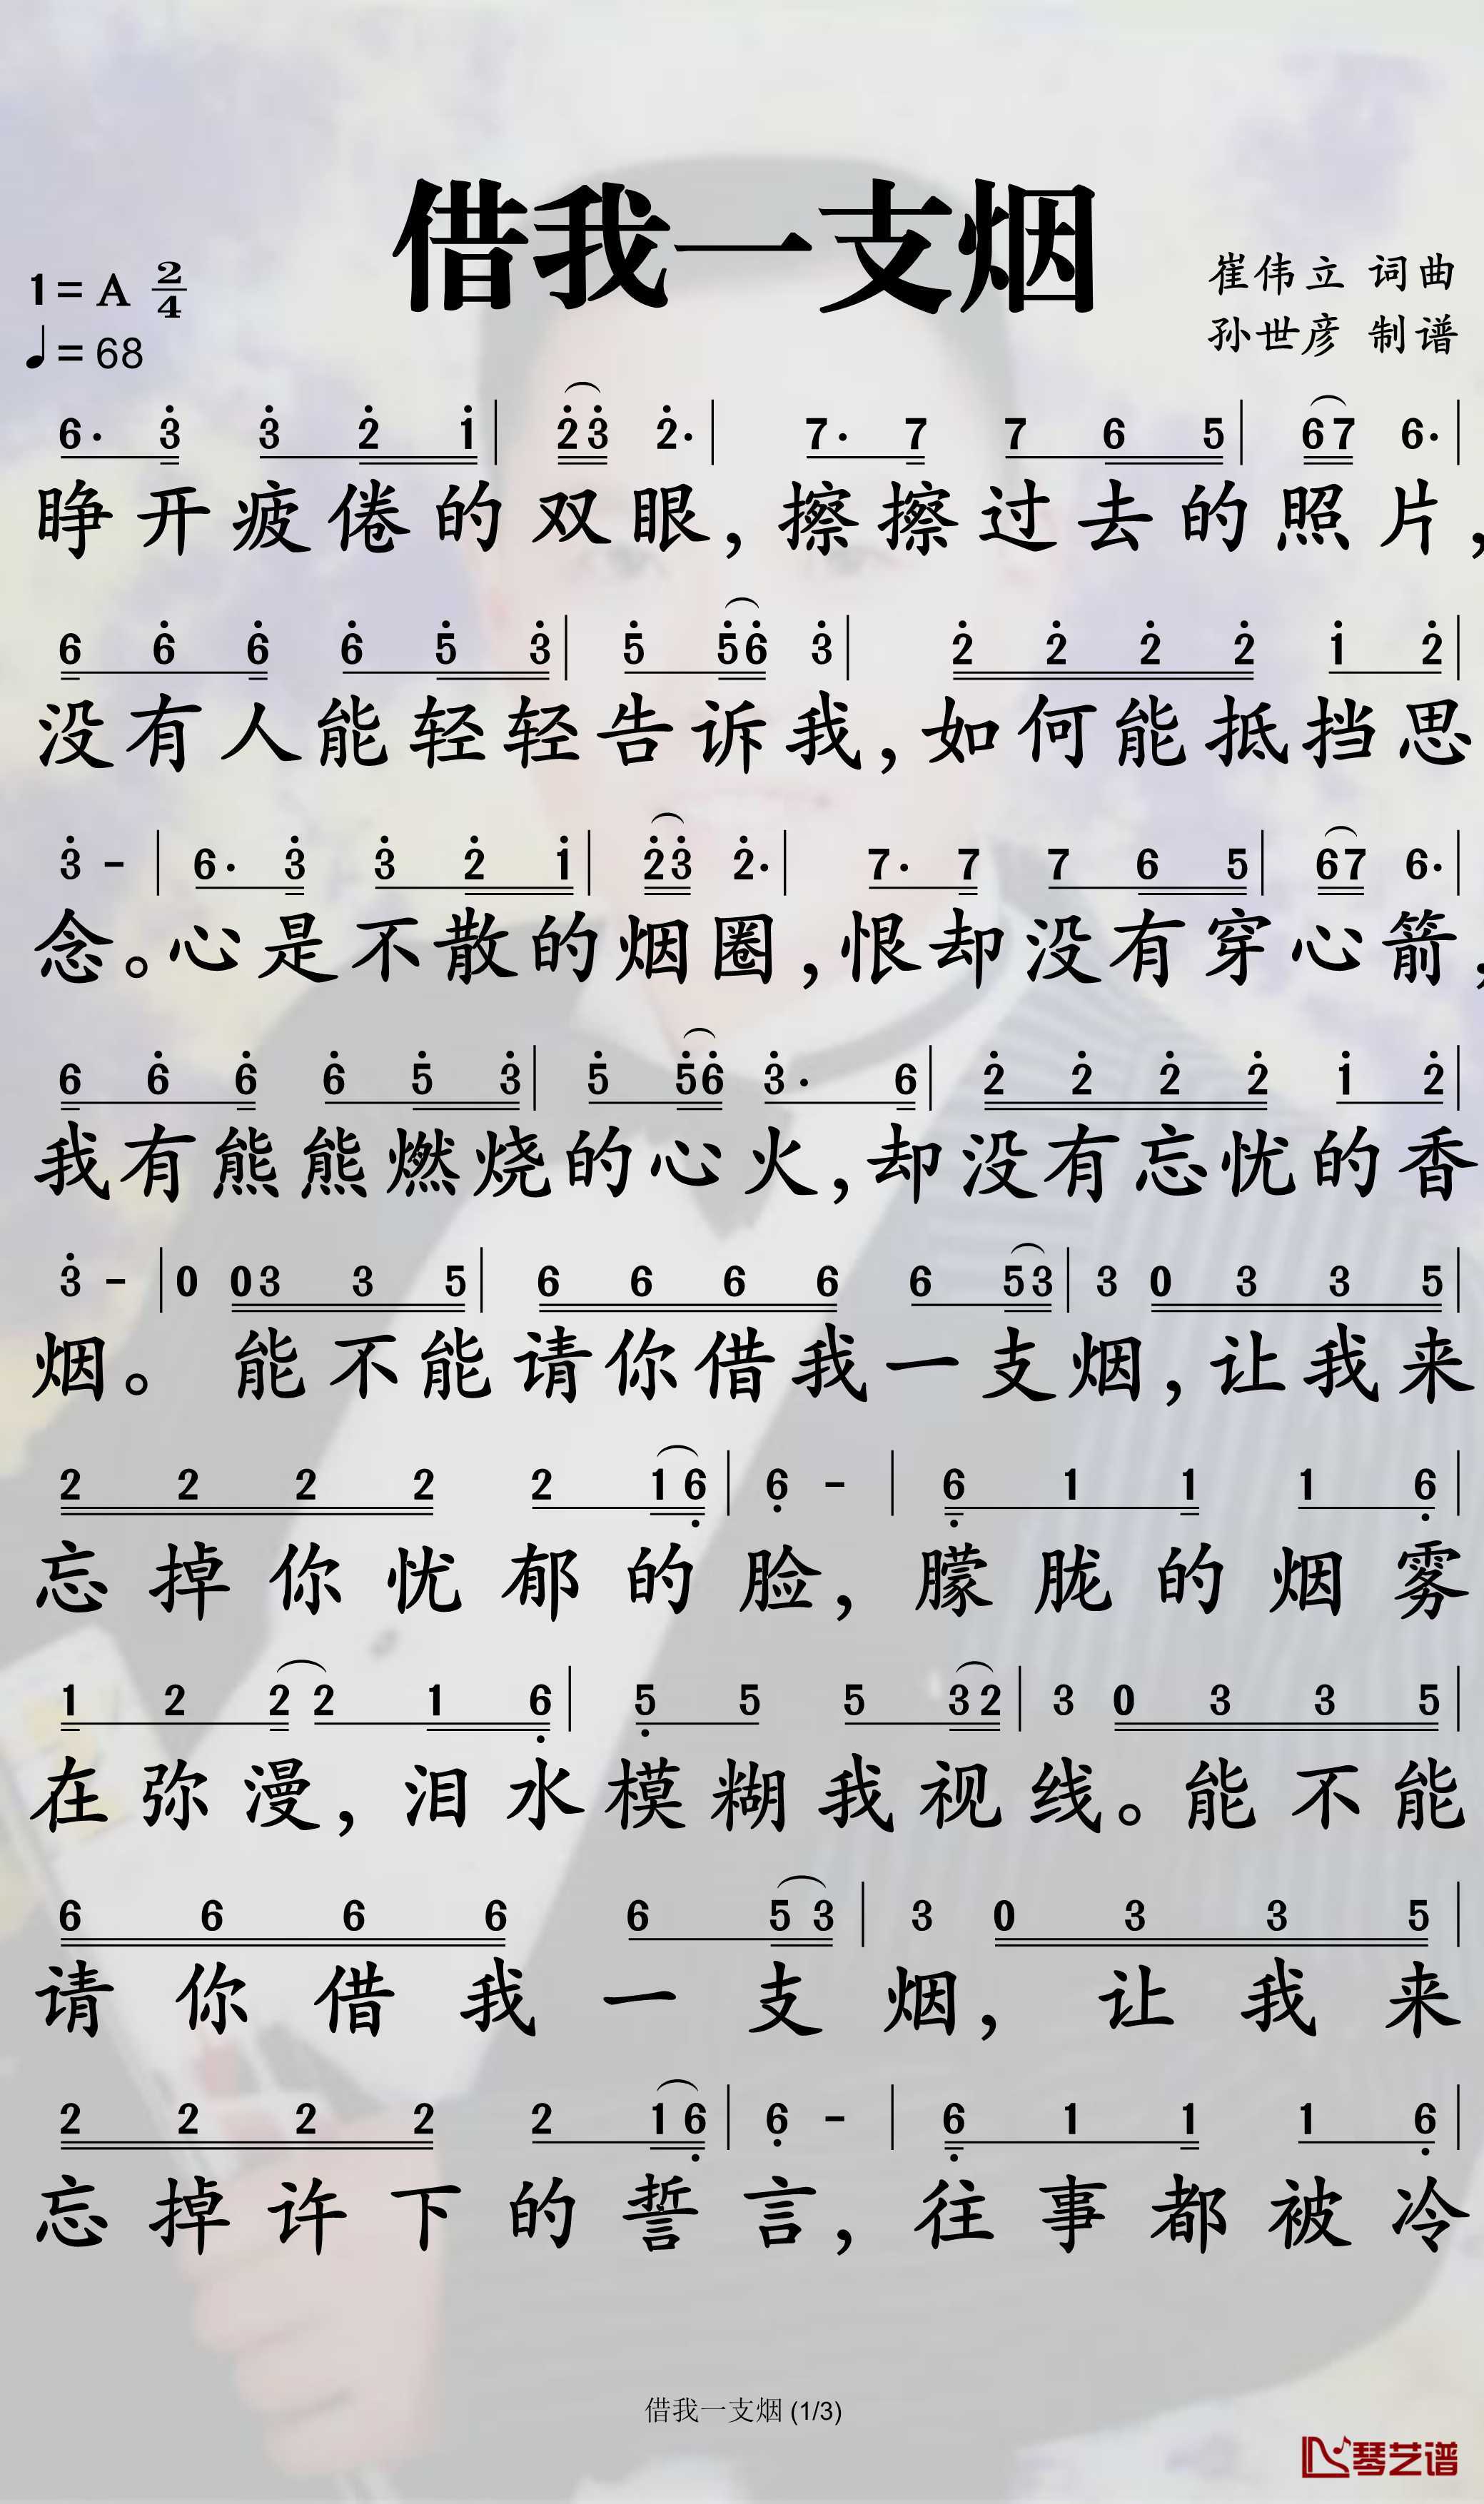 借我一支烟
1=A 2/4
♩=68
崔伟立 词曲
孙世彦 制谱
6· 3 3 2 1 | 23 2· | 7· 7 7 6 5 | 67 6· |
睁开疲倦的双眼，擦擦过去的照片，
6 6 6 6 5 3 | 5 56 3 | 2 2 2 2 1 2 |
没有人能轻轻告诉我，如何能抵挡思
3 - | 6· 3 3 2 1 | 23 2· | 7· 7 7 6 5 | 67 6· |
念。心是不散的烟圈，恨却没有穿心箭，
6 6 6 6 5 3 | 5 56 3· 6 | 2 2 2 2 1 2 |
我有熊熊燃烧的心火，却没有忘忧的香
3 - | 0 03 3 5 | 6 6 6 6 6 53 | 3 0 3 3 5 |
烟。能不能请你借我一支烟，让我来
2 2 2 2 2 16 | 6 - | 6 1 1 1 6 |
忘掉你忧郁的脸，朦胧的烟雾
1 2 2 2 1 6 | 5 5 5 32 | 3 0 3 3 5 |
在弥漫，泪水模糊我视线。能不能
6 6 6 6 6 53 | 3 0 3 3 5 |
请你借我一支烟，让我来
2 2 2 2 2 16 | 6 - | 6 1 1 1 6 |
忘掉许下的誓言，往事都被冷
借我一支烟 (1/3)
琴艺谱